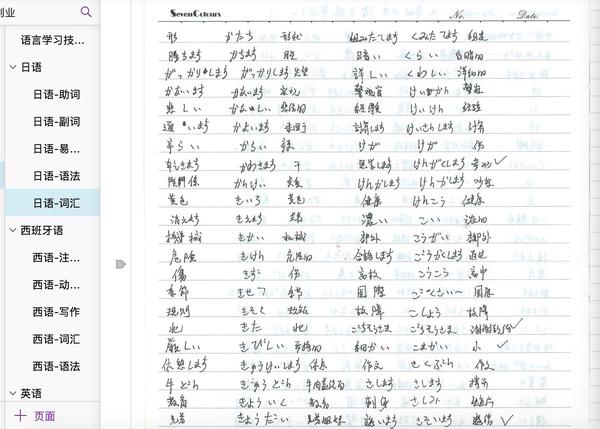 刂业
语言学习技...
日语
日语-助词
日语-副词
日语-易...
日语-语法
日语-词汇
西班牙语
西语-注...
西语-动...
西语-写作
西语-词汇
西语-语法
英语
页面
SevenColours No. Date.
形 かたち 形状 組みたてます くみたてます 组装
勝ちます かちます 胜 暗い くらい
がっかりします がっかりします 失望 詳しい くわしい 详细的
かないます かないます 警察官 けいかん 警察
悲しい かなしい 悲伤的 経験 けいけん 经验
通います かよいます 計算します けいさんします 计算
辛い からい 辣 けが けが 伤
乾きます かわきます 干 見学します けんがくします ✓
関係 かんけい 关系 けんかします けんかします 吵架
黄色 きいろ 黄色 健康 けんこう 健康
消えます きえます 濃い こい 浓的
機械 きかい 机械 郊外 こうがい 郊外
危険 きけん 危险的 合格します ごうかくします
傷 きず 伤 高校 こうこう 高中
季節 きせつ 季节 国際 こくさい〜 国际
規則 きそく 规则 故障 こしょう 故障
北 きた 北 ごちそうさま ごちそうさま ✓
厳しい きびしい 严格的 細かい こまかい 小 ✓
休憩します きゅうけいします 休息 作文 さくぶん 作文
牛どん ぎゅうどん 牛肉盖饭 さします さします
教育 きょういく 教育 刺身 さしみ
兄弟 きょうだい 兄弟姐妹 誘います さそいます 邀请 ✓